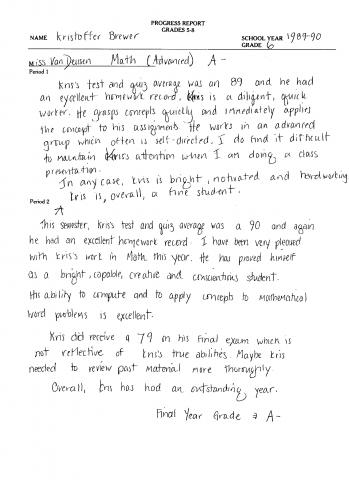 PROGRESS REPORT
GRADES 5-8
NAME Kristoffer Brewer SCHOOL YEAR 1989-90
GRADE 6
Miss Van Deusen Math (Advanced) A-
Period 1
Kris's test and quiz average was an 89 and he had
an excellent homework record. Kris is a diligent, quick
worker. He grasps concepts quickly and immediately applies
the concept to his assignments. He works in an advanced
group which often is self-directed. I do find it difficult
to maintain Kris's attention when I am doing a class
presentation.
In any case, Kris is bright, motivated and hardworking
Kris is, overall, a fine student.
Period 2
A
This semester, Kris's test and quiz average was a 90 and again
he had an excellent homework record. I have been very pleased
with Kris's work in Math this year. He has proved himself
as a bright, capable, creative and conscientious student.
His ability to compute and to apply concepts to mathematical
word problems is excellent.
Kris did receive a 79 on his final exam which is
not reflective of Kris's true abilities. Maybe Kris
needed to review past material more thoroughly.
Overall, Kris has had an outstanding year.
Final Year Grade → A-